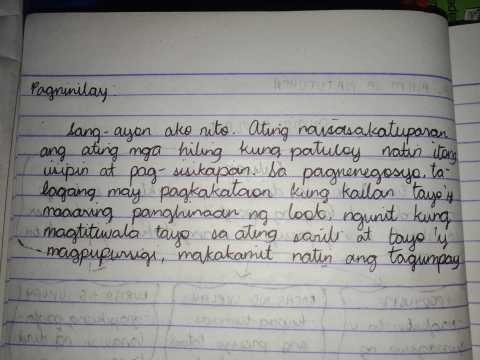 Pagninilay:
Sang-ayon ako nito. Ating naisasakatuparan
ang ating mga hiling kung patuloy natin itong
isipin at pag-sisikapan. Sa pagnenegosyo, ta-
lagang may pagkakataon kung kailan tayo'y
maaaring panghinaan ng loob, ngunit kung
magtitiwala tayo sa ating sarili at tayo'y
magpupursigi, makakamit natin ang tagumpay